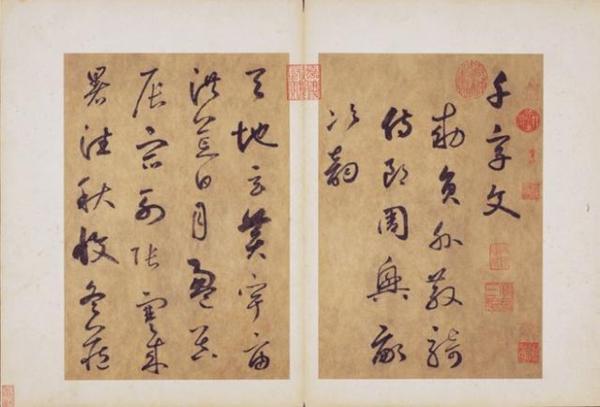 千字文
勅員外散騎
侍郎周興嗣
次韻
天地玄黃宇宙
洪荒日月盈昃
辰宿列張寒來
暑往秋收冬藏